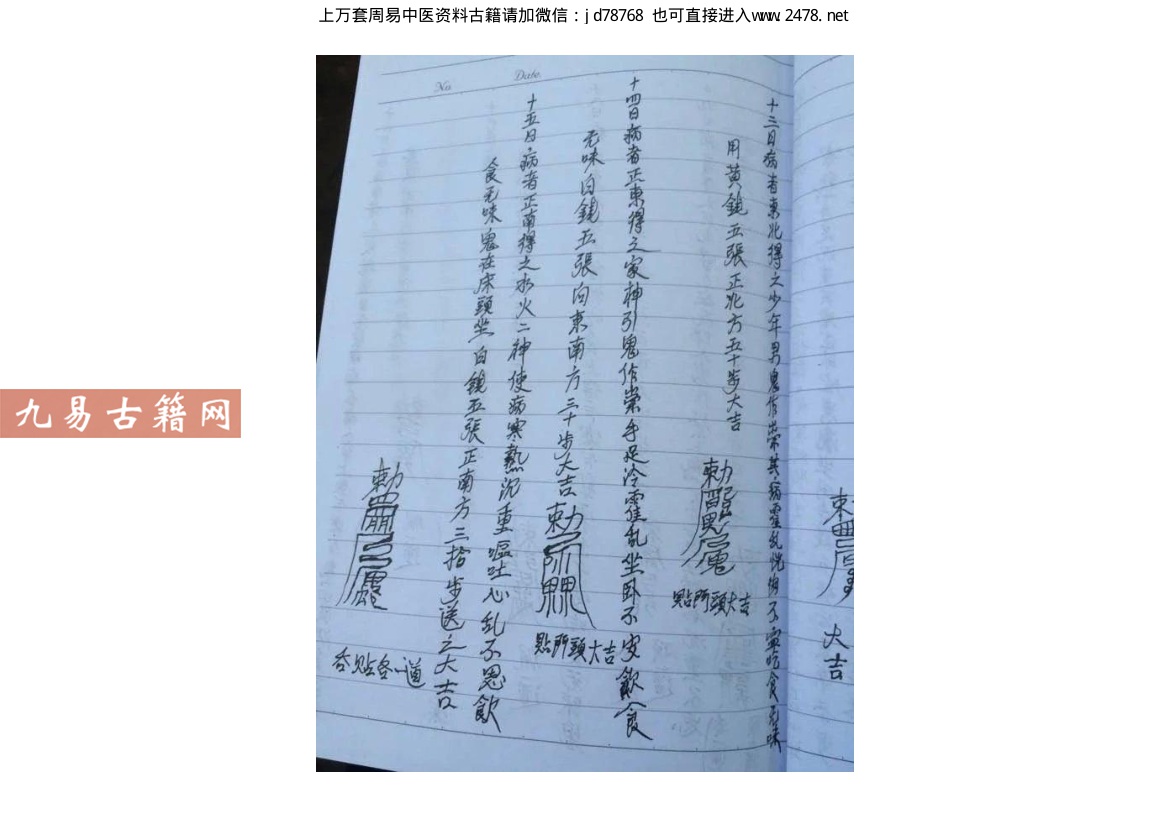 上万套周易中医资料古籍请加微信：jd78768 也可直接进入www.2478.net
九易古籍网
No.
Date.
十三日病者東北得之少年男鬼作祟其病霍乱恍惚不寧吃食无味
用黄錢五張正北方五十步大吉
貼門頭大吉
十四日病者正東得之家神引鬼作祟手足冷霍乱坐卧不安飲食
无味白錢五張向東南方三十步大吉
貼門頭大吉
十五日病者正南得之水火二神使病寒熱沉重嘔吐心乱不思飲
食无味鬼在床頭坐白錢五張正南方三拾步送之大吉
吞貼各一道
大吉